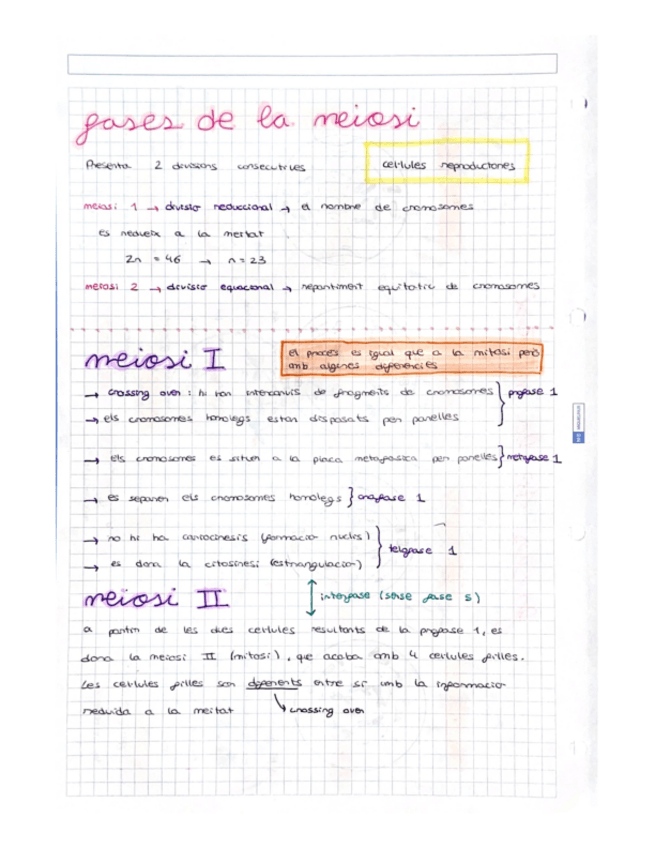 fases de la meiosi
Presenta 2 divisions consecutives
cèl·lules reproductores
meiosi 1 → divisió reduccional → el nombre de cromosomes
es redueix a la meitat.
2n = 46 → n = 23
meiosi 2 → divisió equacional → repartiment equitatiu de cromosomes
meiosi I
el procés es igual que a la mitosi però
amb algines diferències
→ crossing over : hi han intercanvis de fragments de cromosomes
→ els cromosomes homòlegs estan disposats per parelles
} profase 1
→ els cromosomes es situen a la placa metafàsica per parelles } metafase 1
→ es separen els cromosomes homòlegs } anafase 1
→ no hi ha cariocinesis (formació nuclis)
→ es dona la citosinesi (estrangulació)
} telofase 1
meiosi II
interfase (sense fase s)
a partir de les dues cèl·lules resultants de la profase 1, es
dona la meiosi II (mitosi), que acaba amb 4 cèl·lules filles.
Les cèl·lules filles son diferents entre sí amb la informació
reduida a la meitat
↘ crossing over